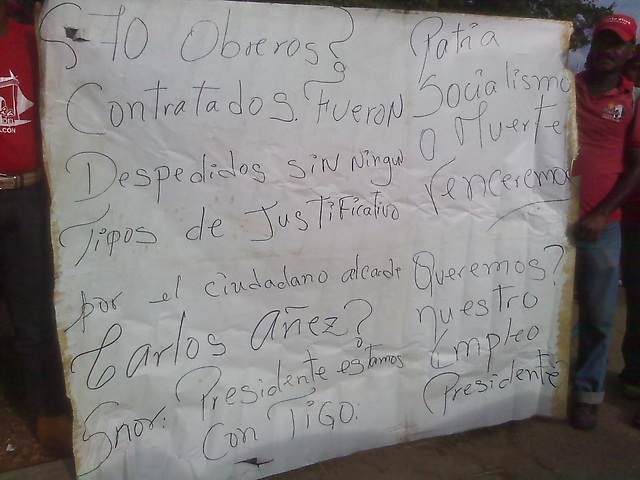 70 Obreros?
Contratados. Fueron
Despedidos sin ningun
Tipos de Justificativo
por el ciudadano alcade
Carlos añez?
Snor: Presidente estamos
Con TiGO:
Patria
Socialismo
O Muerte
Venceremo
Queremos?
nuestro
Empleo
Presidente